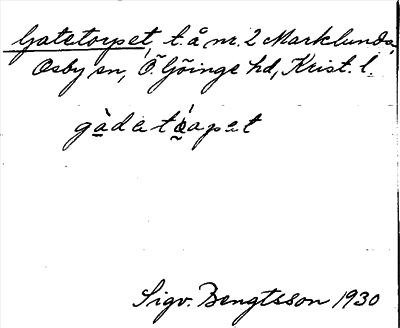 Gatetorpet, t. å nr. 2 Marklunda,
Osby sn, Ö. Göinge hd, Krist. l.
gàdatápat
Sigv. Bengtsson 1930